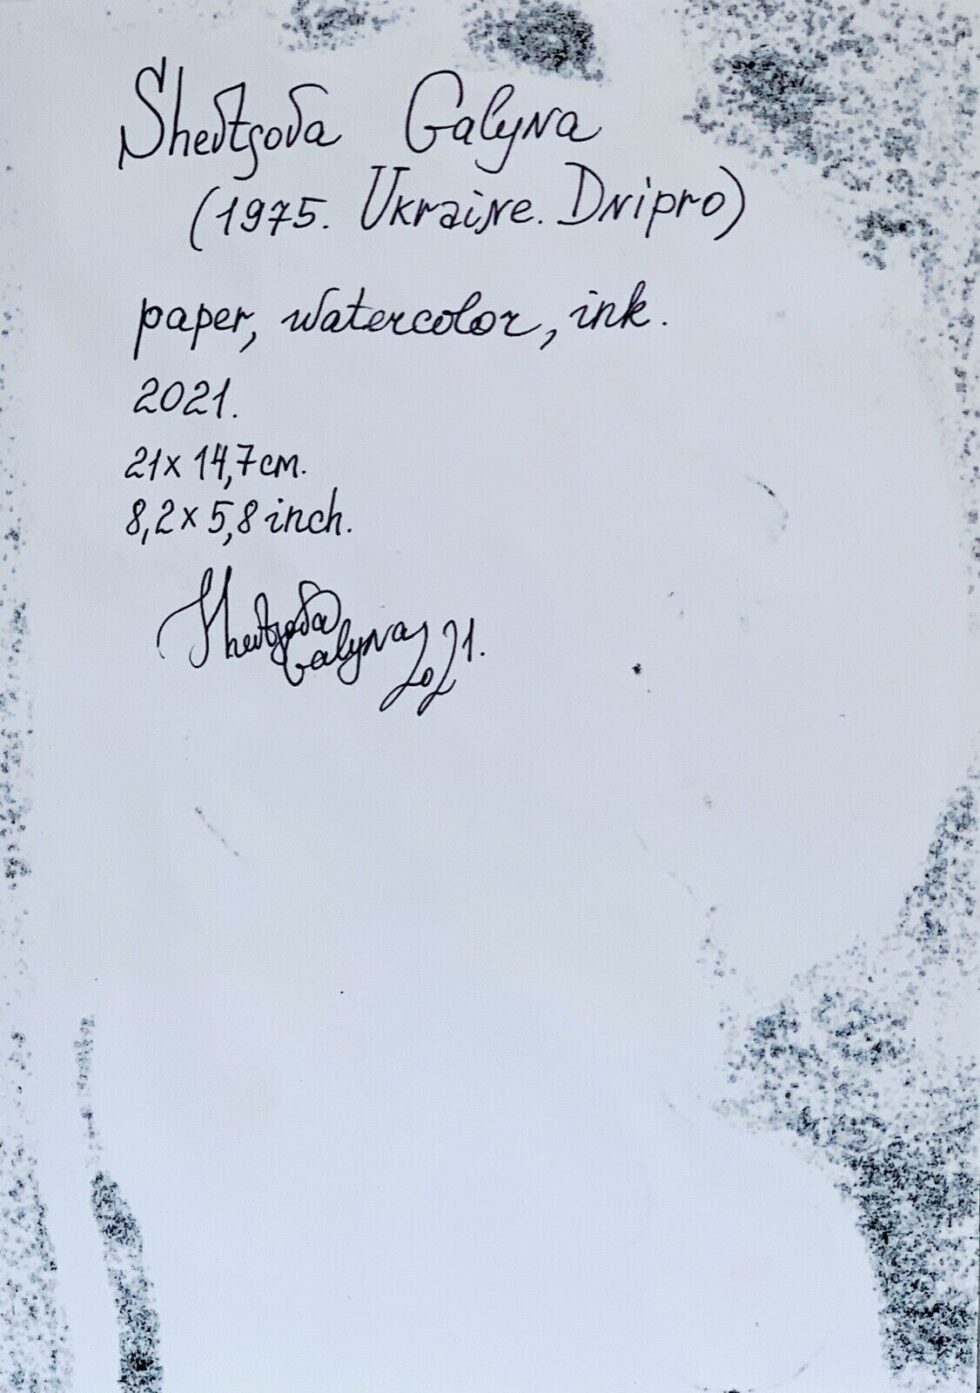 Shevtsova Galyna
(1975. Ukraine. Dnipro)
paper, watercolor, ink.
2021.
21x 14,7cm.
8,2x 5,8 inch.
Shevtsova
Galyna 2021.